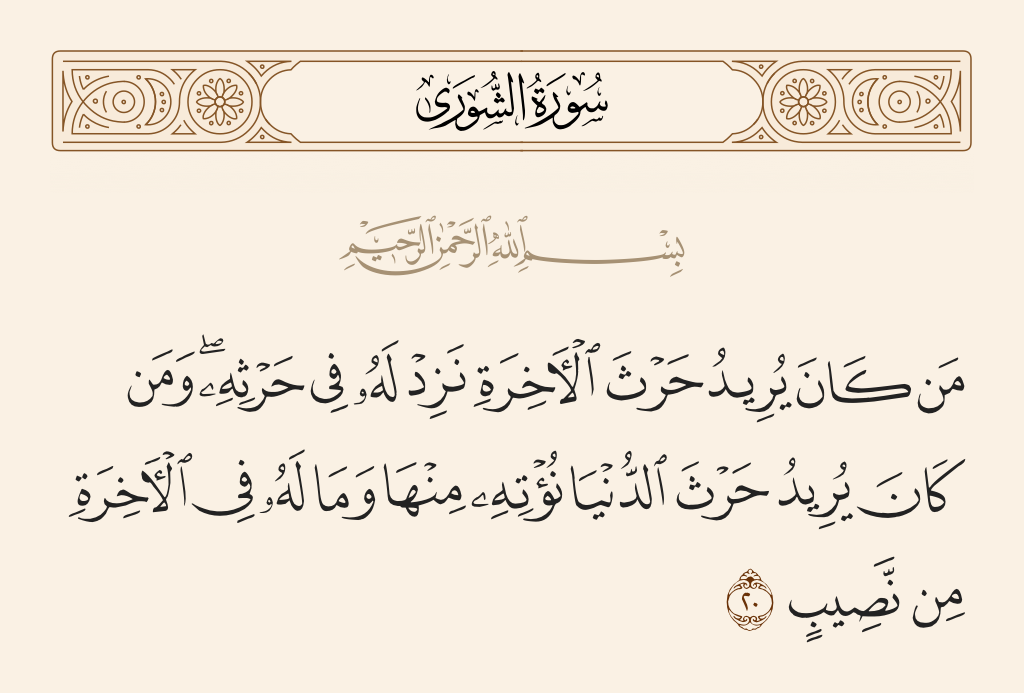 سُورَةُ الشُّورَىٰ
بِسْمِ ٱللَّهِ ٱلرَّحْمَٰنِ ٱلرَّحِيمِ
مَن كَانَ يُرِيدُ حَرْثَ ٱلْـَٔاخِرَةِ نَزِدْ لَهُۥ فِى حَرْثِهِۦ ۖ وَمَن
كَانَ يُرِيدُ حَرْثَ ٱلدُّنْيَا نُؤْتِهِۦ مِنْهَا وَمَا لَهُۥ فِى ٱلْـَٔاخِرَةِ
مِن نَّصِيبٍ ٢٠